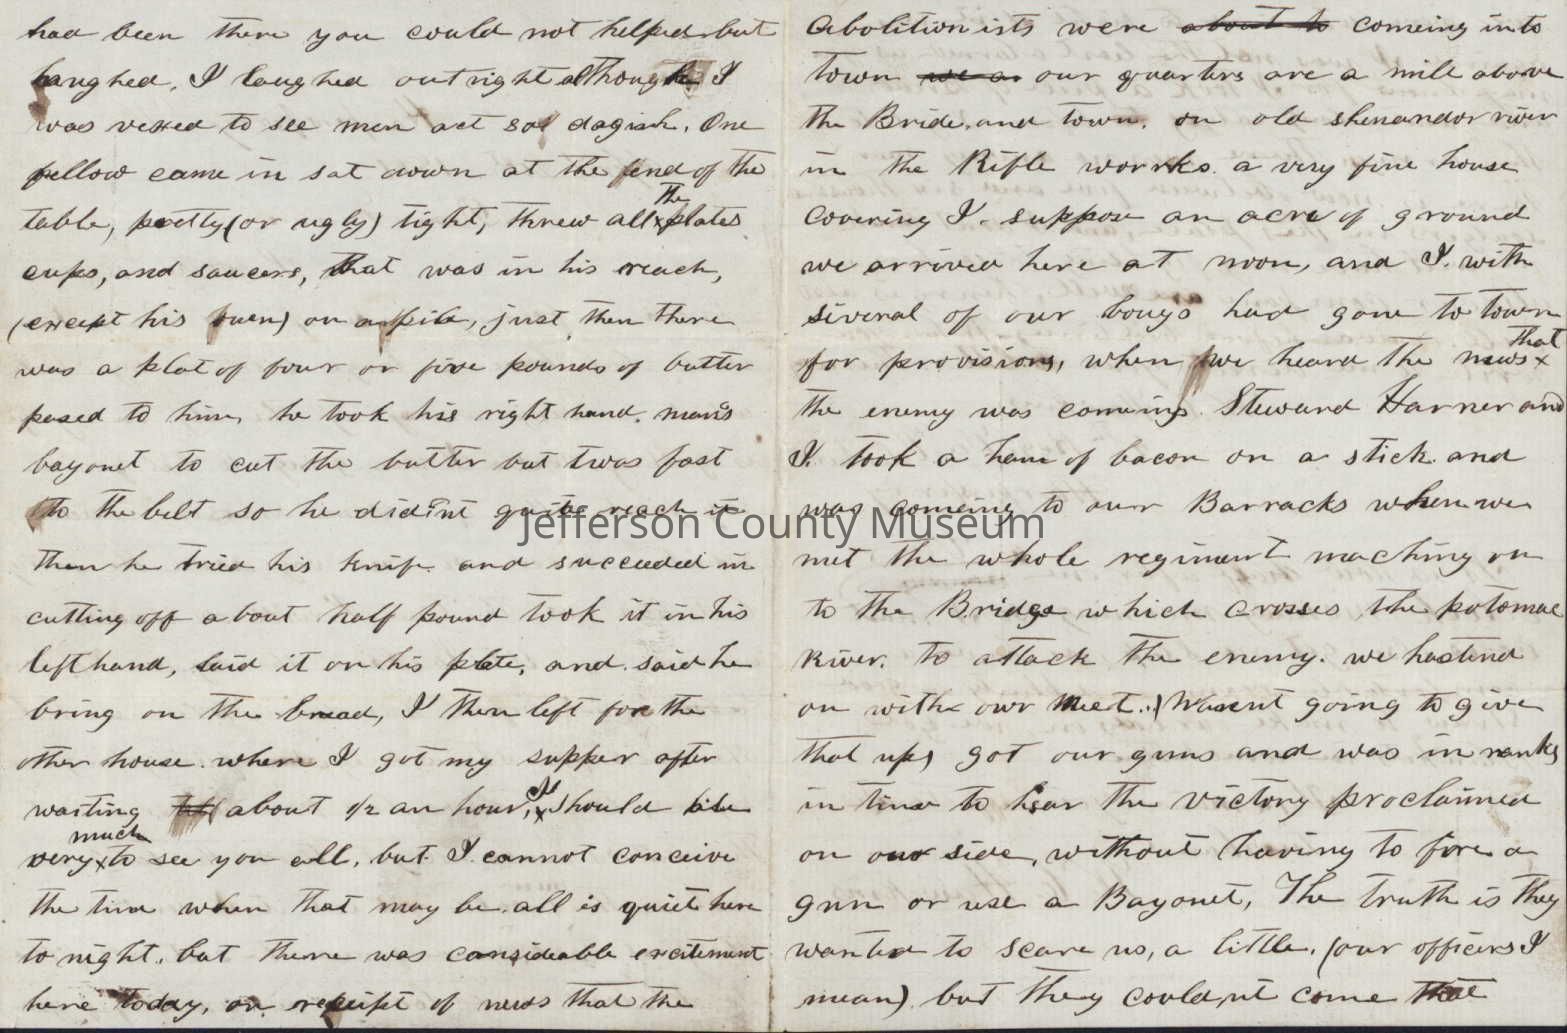 had been there you could not helped but
laughed, I laughed outright although I
was vexed to see men act so dogish. One
fellow came in sat down at the end of the
table, pretty (or ugly) tight, threw all the plates
cups, and saucers, that was in his reach,
(except his owen) on a pile, just then there
was a plat of four or five pounds of butter
pased to him, he took his right hand. man's
bayonet to cut the butter but twas fast
to the belt so he did'nt quite reach it
then he tried his knife and succeeded in
cutting off about half pound took it in his
left hand, laid it on his plate, and said he
bring on the bread, I then left for the
other house where I got my supper after
waiting about 1/2 an hour, I should like
very much to see you all, but I cannot conceive
the time when that may be. all is quiet here
to night, but there was considable excitement
here today, on receipt of news that the
Abolitionists were about to comeing into
town we ar our quarters are a mile above
the Bride, and town. on old shenandor river
in the Rifle worrks. a very fine house
covering I. suppose an acre of ground
we arrived here at noon, and I. with
siveral of our bouys had gone to town
for provisions, when we heard the news that
the enemy was comeing. Steward Harner and
I. took a ham of bacon on a stick. and
was comeing to our Barracks when we
met the whole regiment maching on
to the Bridge which crosses the potomac
River. to attack the enemy. we hastend
on with our meet. (Wasent going to give
that up) got our guns and was in ranks
in time to hear the victory proclaimed
on our side, without having to fire a
gun or use a Bayonet, The truth is they
wanted to scare us, a little. (our officers I
mean) but they could,nt come that
Jefferson County Museum